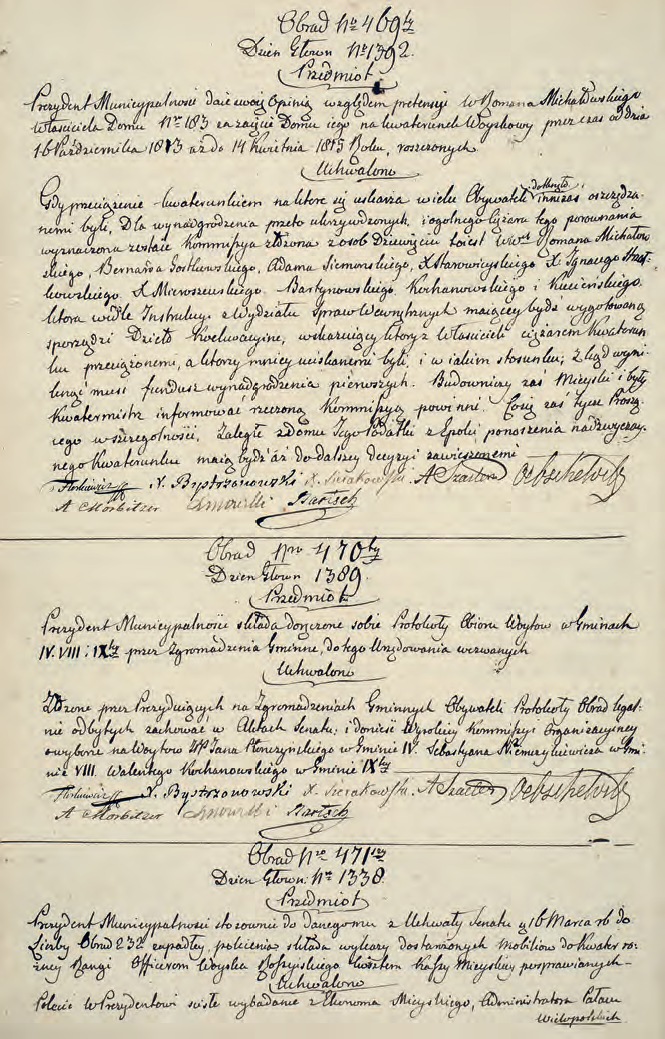 Obrad Nro 469ty
Dzien: Głown: Nro 1392.
Przedmiot
Prezydent Municypalnosci daie swoią Opinią względem pretensyi W Romana Michałowskiego
Właściciela Domu Nro 183 za zaięcie Domu iego na kwaterunek Woyskowy przez czas od dnia
16 Pazdziernika 1813 aż do 14 Kwietnia 1815 Roku, roszczonych
Uchwalono
Gdy przeciążenie kwaterunkiem na które się uskarza wielu Obywateli dotknęło, inni zas oszczędza-
nemi byli, Dla wynadgrodzenia przeto ukrzywdzonych, i ogolnego Cięzaru tego porownania
wyznaczona zostaie Kommissya złożona z osob Dziewięciu to iest Romana Michałow-
skiego, Bernarda Sostkowskiego, Adama Siemonskiego, X Starowieyskiego X. Ignacego
X Mieroszewskiego. Bartynowskiego, Kochanowskiego i Kucieńskiego.
ktora wedle Instrukcyi z Wydziału Spraw Wewnętrznych maiącey bydź wygotowaną
sporządzi Dzieło wskazuiący ktorzy z Właścicieli ciężarem kwaterun-
ku przeciążonemi, a ktorzy mniey uciskanemi byli, i w iakim stosunku; zkąd wyni-
knąć musi fundusz wynadgrodzenia pierwszych. Budowniczy zas Mieyski i były
Kwatermistrz informować rzeczoną Kommissyą powinni. Cosię zaś tycze Proszą-
cego w szczegolności, Zaległe z domu Jego Podatki z Epoki ponoszenia nadzwyczay-
nego kwaterunku maią bydź aż do dalszey decyzyi zawieszonemi
Florkiewicz X. Bystrzonowski X. Sierakowski. A Szaster Oebschelwitz
A Morbitzer Bartsch
Obrad Nro 470ty
Dzien Głown 1389.
Przedmiot
Prezydent Municypalności składa doręczone sobie Protokoły Obioru Woytow w Gminach
IV. VIII i IXtej przez Zgromadzenia Gminne, do tego Urzędowania wezwanych
Uchwalono
Złożone przez Prezyduiących na Zgromadzeniach Gminnych Obywateli Protokoły Obrad legal-
nie odbytych zachować w Aktach Senatu, i donieść Wysokiey Kommissyi Organizacyiney
o wyborze na Woytow Jana Płonczynskiego w Gminie IV. Sebastyana Niemczykiewicza w Gmi-
nie VIII. Walentego Kochanowskiego w Gminie IXtej
Florkiewicz X. Bystrzonowski X. Sierakowski. A Szaster Oebschelwitz
A Morbitzer Bartsch
Obrad Nro 471szy
Dzien Głown: Nro 1338.
Przedmiot
Prezydent Municypalnosci stosownie do danego mu z Uchwały Senatu 16 Marca rb do
Liczby Obrad 232 zapadłey, polecenia składa wykazy dostarczonych Mobiliow do kwater ro-
zney Rangi Officerom Woyska Rossyiskiego kosztem Kassy Mieyskiey posprawianych -
Uchwalono
Polecić W Prezydentowi scisłe wybadanie z Ekonoma Mieyskiego, Administratora Pałacu
Wielopolskich